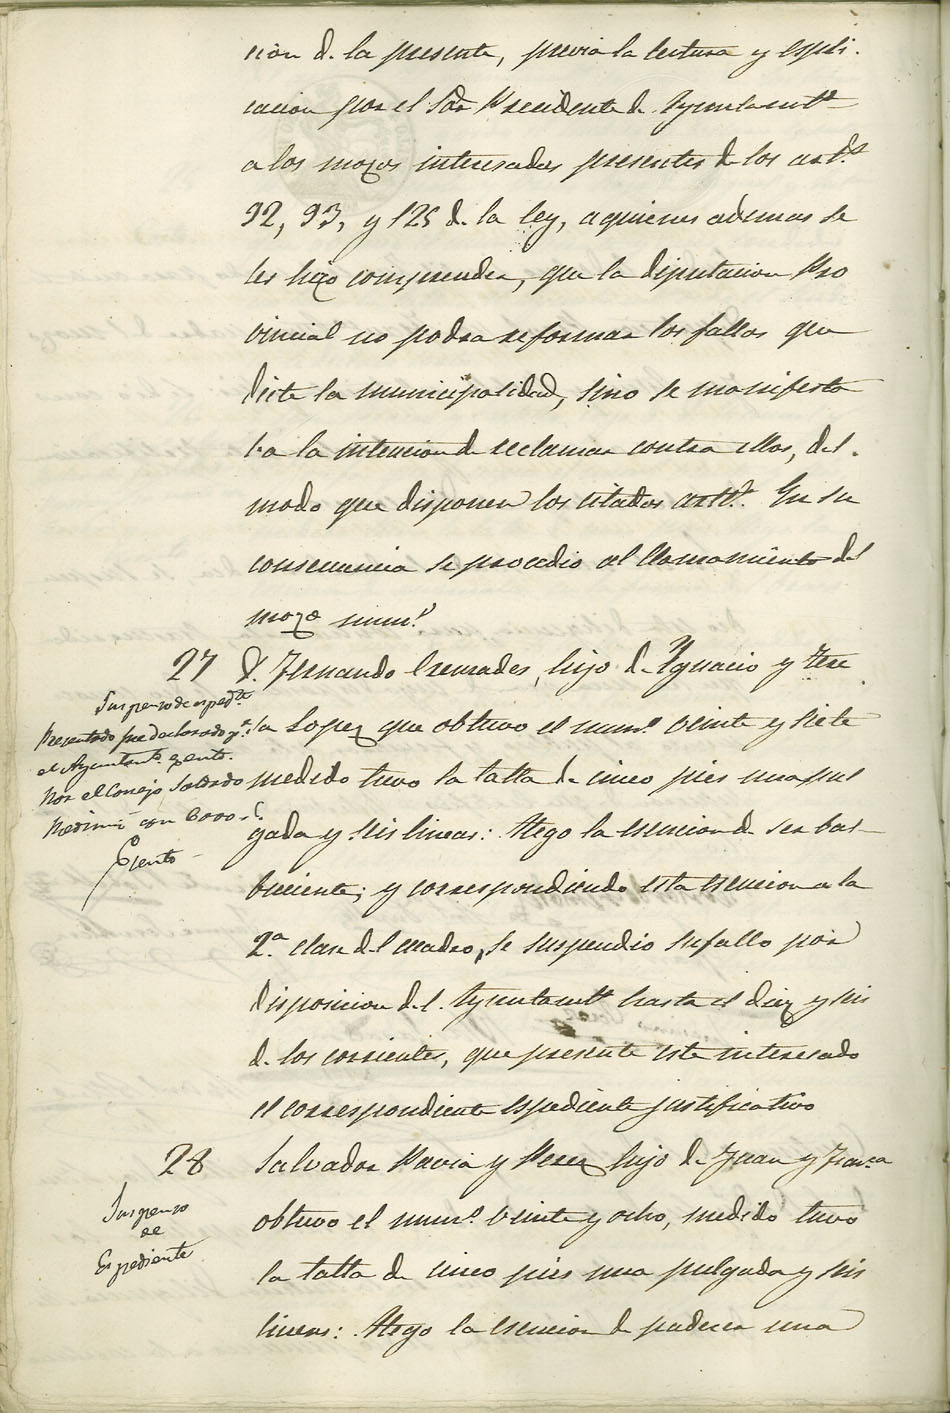 cion de la presente, previa la lectura y espli-
cacion por el Sor Presidente de Ayuntamto
a los mozos interesados presentes de los arts
92, 93, y 125 de la ley, a quienes ademas se
les hizo comprender, que la diputacion Pro
vincial no podra reformar los fallos que
dicte la municipalidad, sino se manifesta
ba la intencion de reclamar contra ellos, del
modo que disponen los citados arts. En su
consecuencia se procedio al llamamiento del
mozo numo
27 D. Fernando hijo de Ygnacio y Tere
sa Lopez que obtuvo el numo veinte y siete
medido tuvo la talla de cinco pies una pul
gada y seis lineas: Alego la esencion de ser bar-
bucientes; y correspondiendo esta esencion a la
2a clase del cuadro, se suspendio su fallo por
disposicion del Ayuntamto hasta el diez y seis
de los corrientes, que presente este interesado
el correspondiente espediente justificativo
Suspenso de espedte
Presentado fue declarado pr
el Ayuntamto esento.
Por el Consejo Soldado
Redimió con 6000 r
Esento
28 Salvador Pavia y Perez hijo de Juan y Franca
obtuvo el numo veinte y ocho, medido tuvo
la talla de cinco pies una pulgada y seis
lineas: Alego la esencion de padecer una
Suspenso
de
Espediente